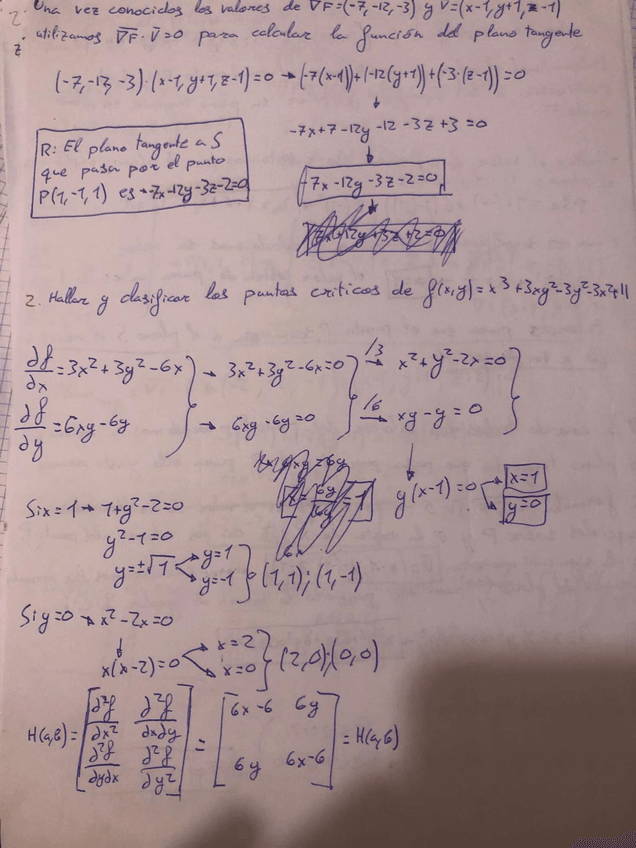 2. Una vez conocidos los valores de ∇F=(-7,-12,-3) y V=(x-1, y+1, z-1)
utilizamos ∇F · V̄=0 para calcular la función del plano tangente
(-7,-12,-3)·(x-1, y+1, z-1)=0 → (-7(x-1))+(-12(y+1))+(-3·(z-1))=0
-7x+7-12y-12-3z+3=0
R: El plano tangente a S
que pasa por el punto
P(1,-1,1) es -7x-12y-3z-2=0
-7x-12y-3z-2=0
2. Hallar y clasificar los puntos críticos de f(x,y)=x³+3xy²-3y²-3x²+11
∂f/∂x=3x²+3y²-6x → 3x²+3y²-6x=0 /3→ x²+y²-2x=0
∂f/∂y=6xy-6y → 6xy-6y=0 /6→ xy-y=0
y(x-1)=0 x=1
y=0
Si x=1 → 1+y²-2=0
y²-1=0
y=±√1 y=1
y=-1 (1,1);(1,-1)
Si y=0 → x²-2x=0
x(x-2)=0 x=2
x=0 (2,0);(0,0)
H(a,b)= [∂²f/∂x² ∂²f/∂x∂y = [6x-6 6y = H(a,b)
∂²f/∂y∂x ∂²f/∂y²] 6y 6x-6]